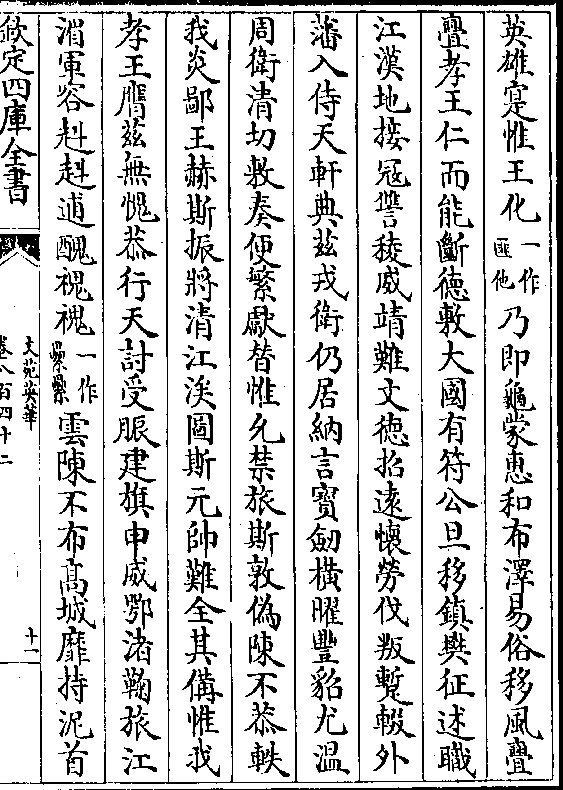 英雄寔惟王化一作匪他乃即龜蒙惠和布澤易俗移風亹
亹孝王仁而能斷德敷大國有符公旦移鎮樊征述職
江漢地接冦讐稜威靖難文德招逺懷勞伐叛蹔輟外
藩入侍天軒典兹戎衛仍居納言寳劒橫曜豐貂尤温
周衛清切敷奏便繁獻替惟允禁旅斯敦偽陳不恭軼
我炎鄙王赫斯振將清江涘圖斯元帥難全其備惟我
孝王膺兹無愧恭行天討受脤建旗申威鄂渚鞠旅江
湄軍容赳赳逋醜褫褫一作纍纍雲陳不布髙城靡持泥首
欽定四庫全書
文苑英華
卷八百四十二
十一